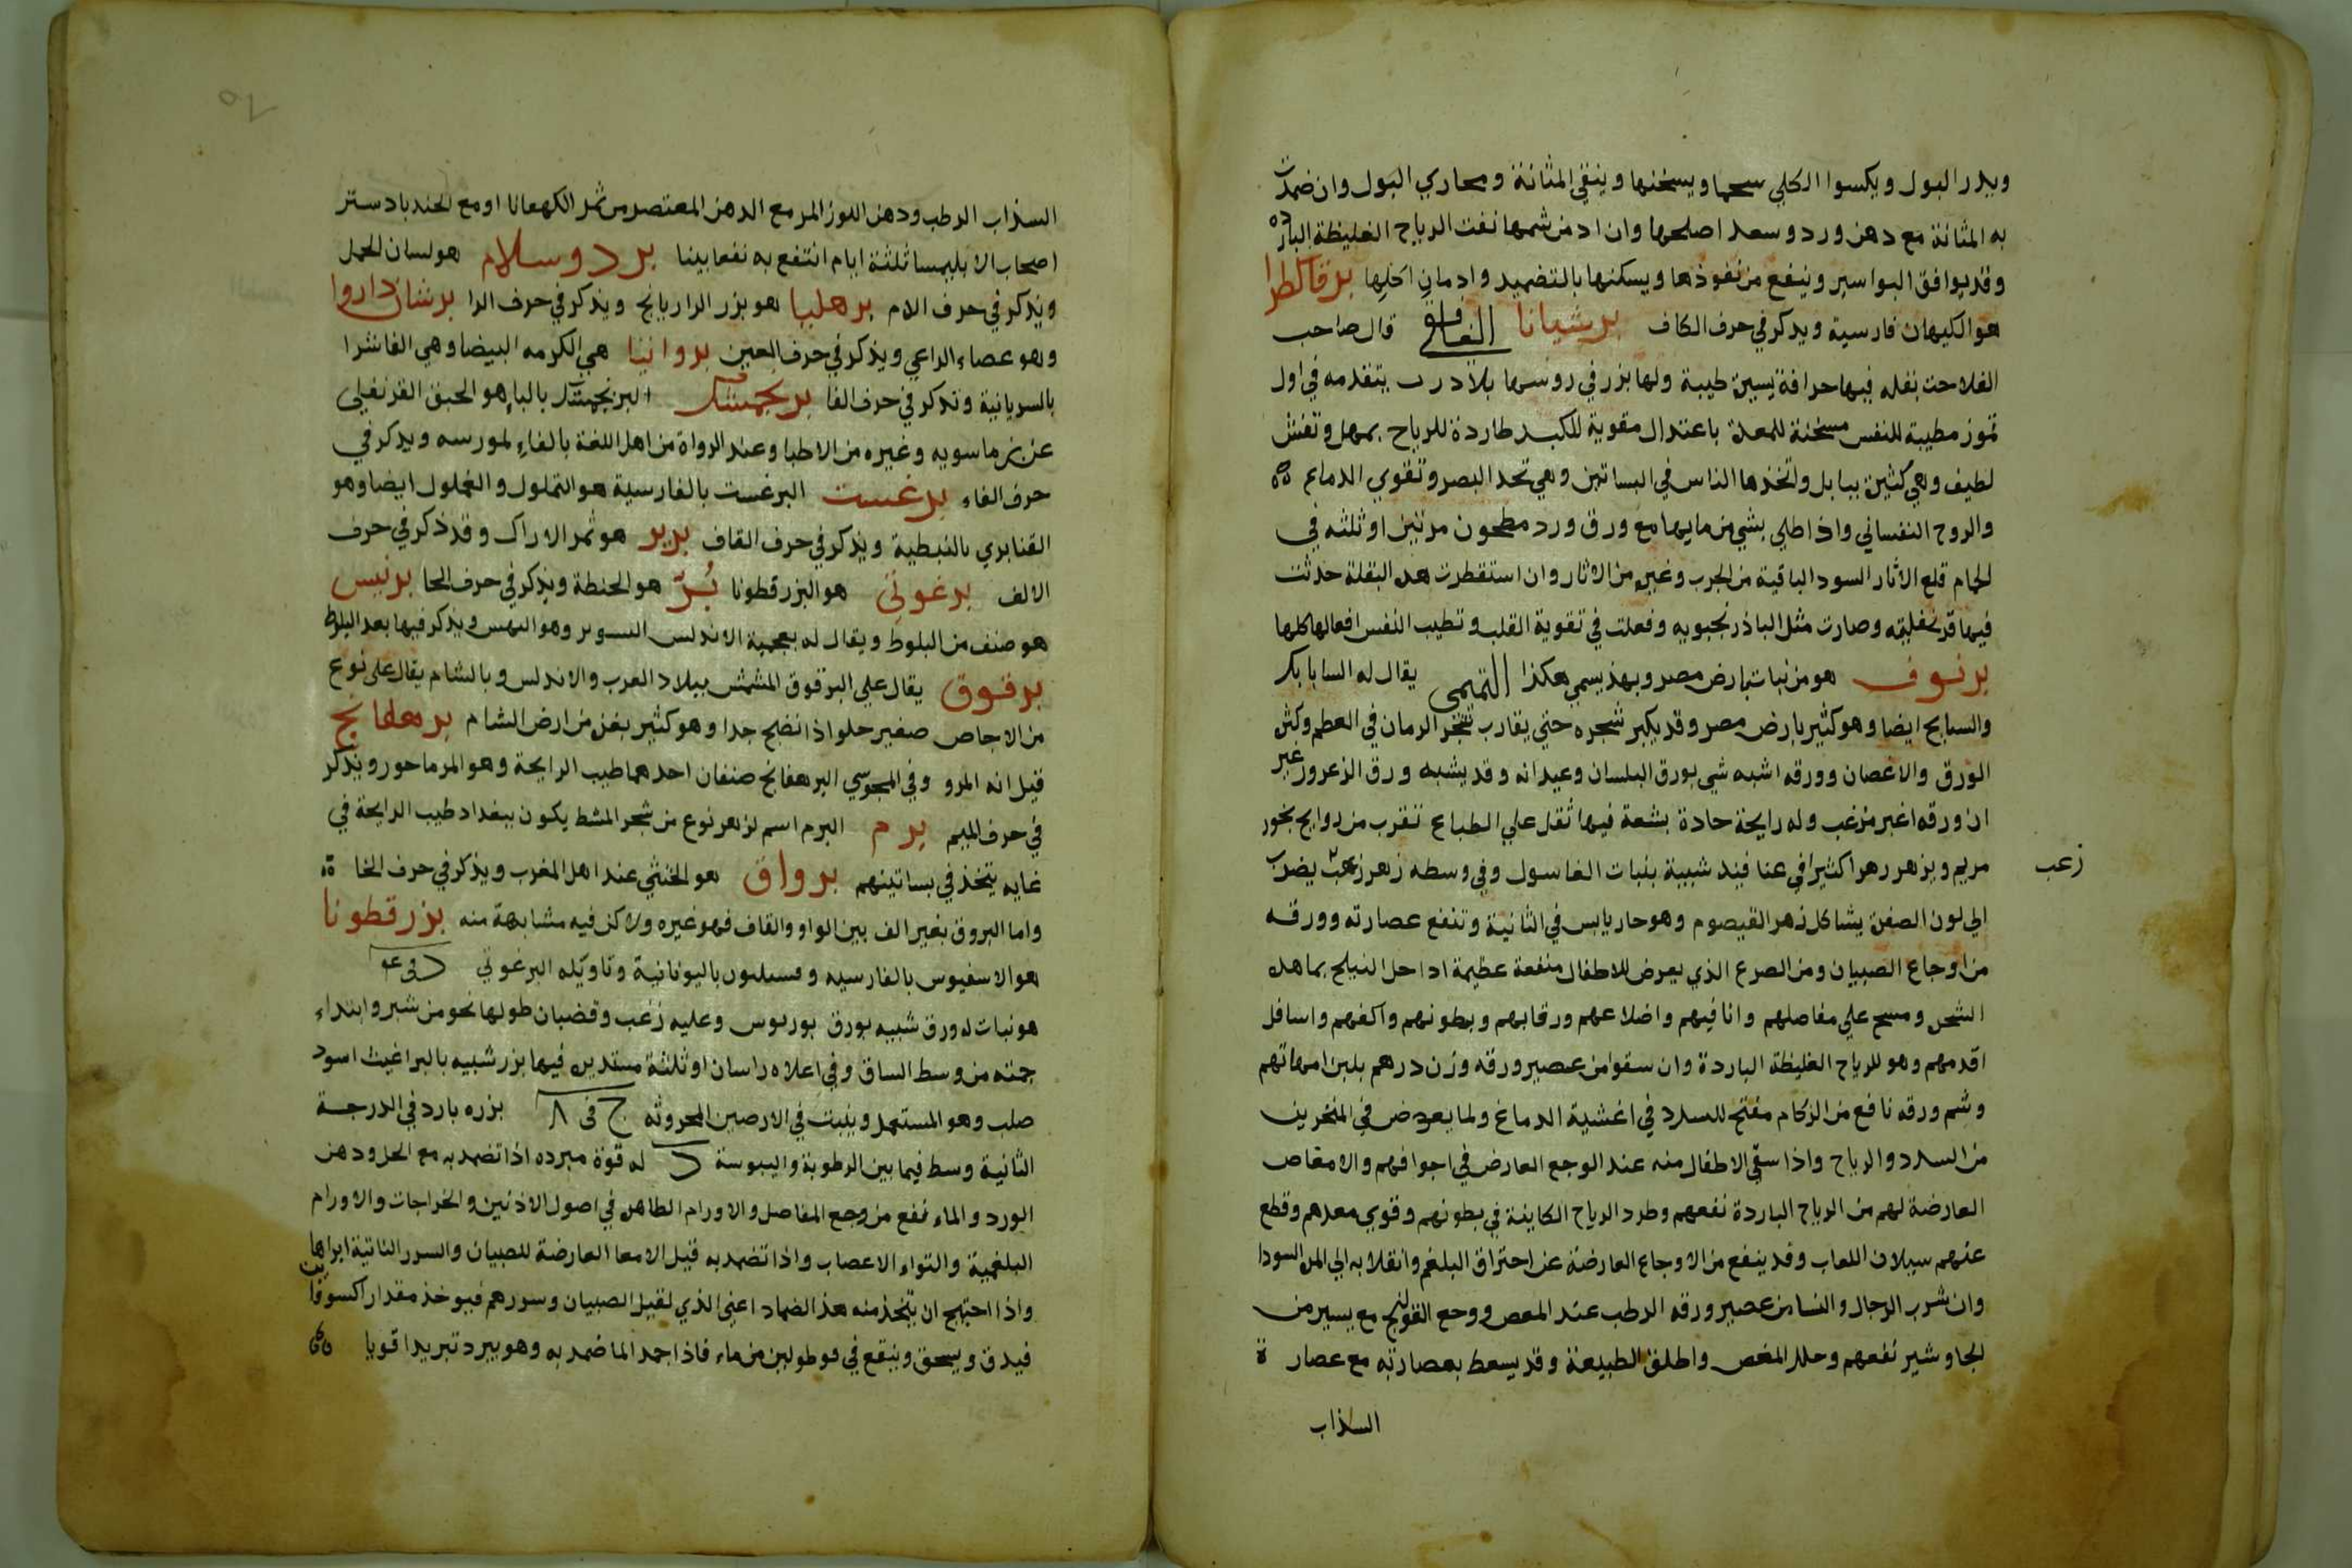 ويدر البول ويكسوا الكلي سحما ويسخنها وينقي المثانة ومجاري البول وان ضمدت
به المثانة مع دهن ورد وسعد اصلحها وان ادمن شمها نفت الرياح الغليظة الباردة
وقد يوافق البواسير وينفع من نفوذها ويسكنها بالتضميد وادمان اكلها برقالطرا
هو الكيهان فارسية ويذكر في حرف الكاف برشيانا الفلاحة قال صاحب
الفلاحت بقله فيها حرافة يسيرة طيبة ولها بزر في روسها بلا درب يتقدمه في اول
تموز مطيبة للنفس مسخنة للمعدة باعتدال مقوية للكبد طاردة للرياح بمهل وتفش
لطيف وهي كثيرة ببابل واتخذها الناس في البساتين وهي تحد البصر وتقوي الدماع
والروح النفساني واذا طلي بشي من مايها مع ورق ورد مطحون مرتين او ثلثه في
الحمام قلع الاثار السود الباقية من الجرب وغيره من الاثار وان استقطرت هذه البقلة حدثت
فيها قرنفليته وصارت مثل الباذرنجبويه وفعلت في تقوية القلب وتطيب النفس افعالها كلها
برنوف هو من نبات بارض مصر وبهذ يسمي هكذا التميمي يقال له السابابك
والسابح ايضا وهو كثير بارض مصر وقد يكبر شجره حتي يقارب شجر الرمان في العظم وكثرة
الورق والاغصان وورقه اشبه شي بورق البلسان وعيدانه وقد يشبه ورق الزعرور غير
ان ورقه اغبر مزغب وله رايحة حادة بشعة فيها ثقل علي الطباع تقرب من روايح بخور
مريم ويزهر زهرا كثيرا في عناقيد شبيبة بنبات الغاسول وفي وسطه زهر زغب يضرب
زعب
الي لون الصفرة يشاكل زهر القيصوم وهو حار يابس في الثانية وتنفع عصارته وورقه
من اوجاع الصبيان ومن الصرع الذي يعرض للاطفال منفعة عظيمة اذا حل النيلج بماء هذه
الشجره ومسح علي مفاصلهم وانافيهم واضلاعهم ورقابهم وبطونهم واكفهم واسافل
اقدمهم وهو للرياح الغليظة الباردة وان سقوا من عصير ورقه وزن درهم بلبن امهاتهم
وشم ورقه نافع من الزكام مفتح للسدد في اغشية الدماغ ولما يعرض في المنخرين
من السدد والرياح واذا سقي الاطفال منه عند الوجع العارض في اجوافهم والامغاص
العارضة لهم من الرياح الباردة نفعهم وطرد الرياح الكاينة في بطونهم وقوي معدهم وقطع
عنهم سيلان اللعاب وقد ينفع من الاوجاع العارضة عن احتراق البلغم وانقلابه الي المرة السودا
وان شرب الرجال والنسا من عصير ورقه الرطب عند المغص ووجع القولنج مع يسير من
الجاوشير نفعهم وحلل المغص واطلق الطبيعة وقد يسعط بعصارته مع عصارة
السذاب
السذاب الرطب ودهن اللوز المر مع الدهن المعتصر من ثمر الكهمانا او مع الجندبادستر
اصحاب الابليمسا ثلثة ايام انتفع به نفعا بينا برد وسلام هو لسان الحمل
ويذكر في حرف الام برهليا هو بزر الرازيانج ويذكر في حرف الرا برشان داروا
وهو عصاء الراعي ويذكر في حرف العين بروانيا هي الكرمه البيضا وهي الفاشرا
بالسريانية وتذكر في حرف الفا برنجمشك البرنجمشك بالباء هو الحبق القرنفيلي
عن بن ماسويه وغيره من الاطبا وعند الرواة من اهل اللغة بالفاء لمورسه ويذكر في
حرف الفاء برغست البرغست بالفارسية هو التملول والغملول ايضا وهو
القنابري بالنبطية ويذكر في حرف القاف برير هو ثمر الاراك وقد ذكر في حرف
الالف برغوثي هو البزرقطونا بُرّ هو الحنطة ويذكر في حرف الحا برنيس
هو صنف من البلوط ويقال له بعجمية الاندلس السوبر وهو البهس ويذكر فيها بعد البلوط
برقوق يقال علي البرقوق المشمش ببلاد الغرب والاندلس وبالشام يقال علي نوع
من الاجاص صغير حلو اذا نضج جدا وهو كثير بغزه من ارض الشام برهلفانج
قيل انه المرو وفي المجوسي البرهفانج صنفان احدهما طيب الرايحة وهو المرماحور ويذكر
في حرف الميم برم البرم اسم لزهر نوع من شجر المشط يكون ببغداد طيب الرايحة في
غايه يتخذ في بساتينهم برواق هو الخنثي عند اهل المغرب ويذكر في حرف الخا
واما البروق بغير الف بين الواو والقاف فهو غيره ولاكن فيه مشابهة منه بزرقطونا
هو الاسفيوس بالفارسيه وفسيليون باليونانية وتاويله البرغوثي د في عه
هو نبات له ورق شبيه بورق بوربوس وعليه زغب وقضبان طولها نحو من شبر وابتداء
جمته من وسط الساق وفي اعلاه راسان او ثلثة مستديره فيها بزر شبيه بالبراغيث اسود
صلب وهو المستعمل وينبت في الارصين المحروثه ج في ٨ بزره بارد في الدرجة
الثانية وسط فيما بين الرطوبة واليبوسة د له قوة مبرده اذا تضمد به مع الخل ودهن
الورد والماء نفع من وجع المفاصل والاورام الظاهرة في اصول الاذنين والخراجات والاورام
البلغمية والتواء الاعصاب واذا تضمد به قيل الامعا العارضة للصبيان والسرر الناتية ابراها
واذا احتيج ان يتخذ منه هذ الضماد اعني الذي لقيل الصبيان وسورهم فيوخذ مقدار اكسوثافن
فيدق ويسحق وينقع في قوطولين من ماء فاذا جمد الما ضمد به وهو يبرد تبريدا قويا